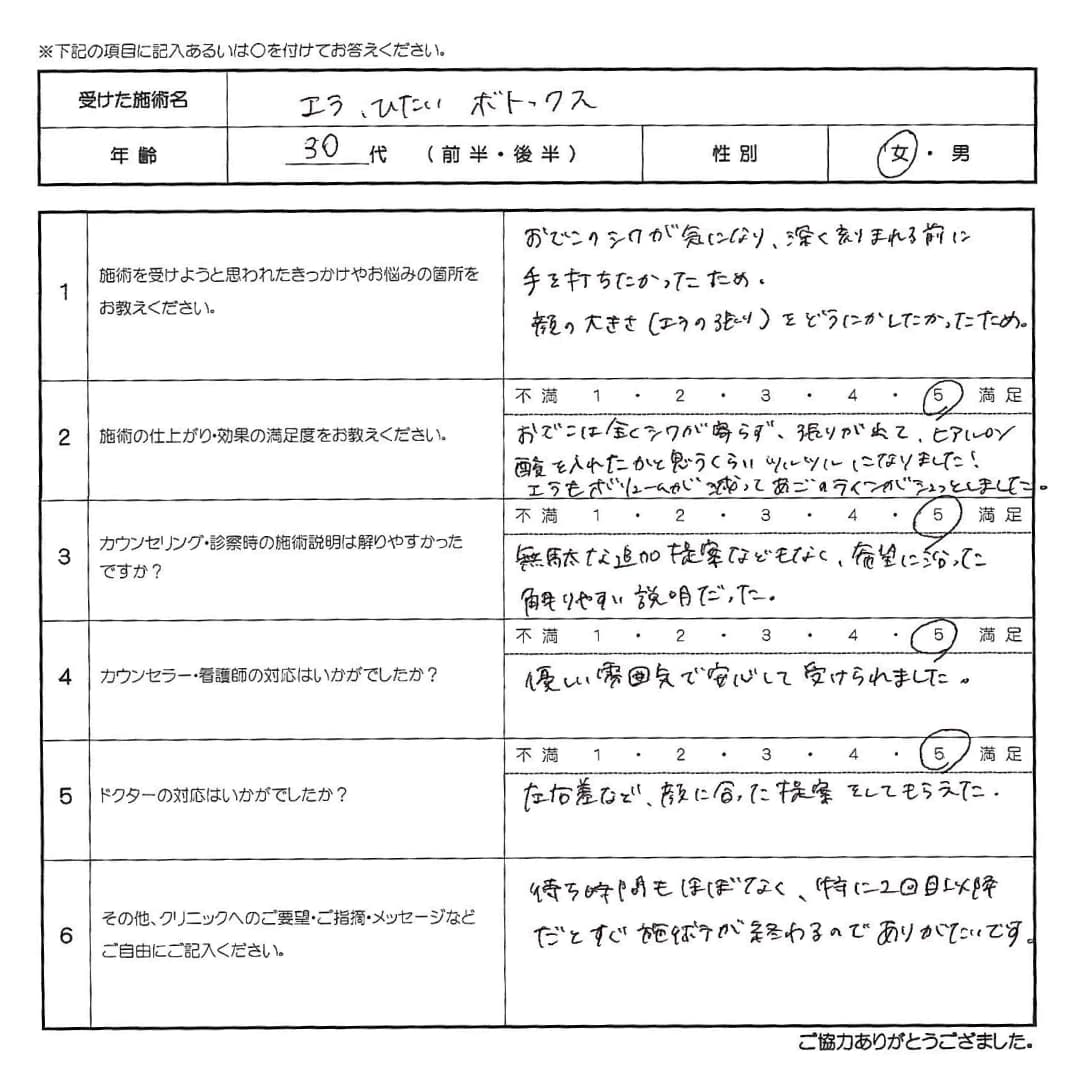 ※下記の項目に記入あるいは○を付けてお答えください。
受けた施術名
エラ、ひたい ボトックス
年齢
30代 (前半・後半)
性別
女・男
1
施術を受けようと思われたきっかけやお悩みの箇所を
お教えください。
おでこのシワが気になり、深く刻まれる前に
手を打ちたかったため。
顔の大きさ(エラの張り)をどうにかしたかったため。
2
施術の仕上がり・効果の満足度をお教えください。
不満 1 ・ 2 ・ 3 ・ 4 ・ 5 満足
おでこは全くシワが寄らず、張りがでて、ヒアルロン
酸を入れたかと思うくらいツルツルになりました!
エラもボリュームが減ってあごのラインがシュッとしました。
3
カウンセリング・診察時の施術説明は解りやすかった
ですか?
不満 1 ・ 2 ・ 3 ・ 4 ・ 5 満足
無駄な追加提案などもなく、希望に沿った
解りやすい説明だった。
4
カウンセラー・看護師の対応はいかがでしたか?
不満 1 ・ 2 ・ 3 ・ 4 ・ 5 満足
優しい雰囲気で安心して受けられました。
5
ドクターの対応はいかがでしたか?
不満 1 ・ 2 ・ 3 ・ 4 ・ 5 満足
左右差など、顔に合った提案をしてもらえた.
6
その他、クリニックへのご要望・ご指摘・メッセージなど
ご自由にご記入ください。
待ち時間もほぼなく、特に2回目以降
だとすぐ施術が終わるのでありがたいです。
ご協力ありがとうござました。